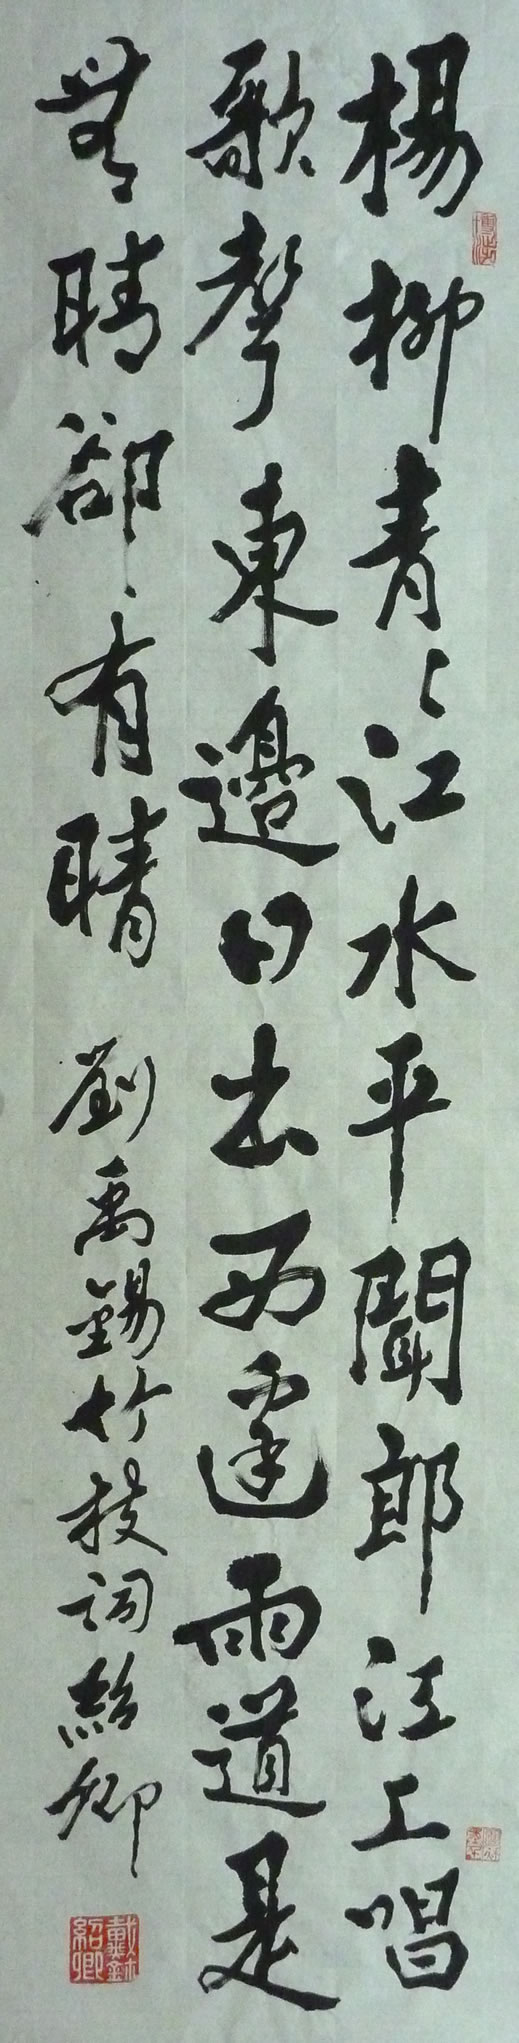 楊柳青〻江水平聞郎江上唱
歌聲東邊日出西邊雨道是
無晴卻有晴 劉禹錫竹枝詞紹卿
戴 紹卿